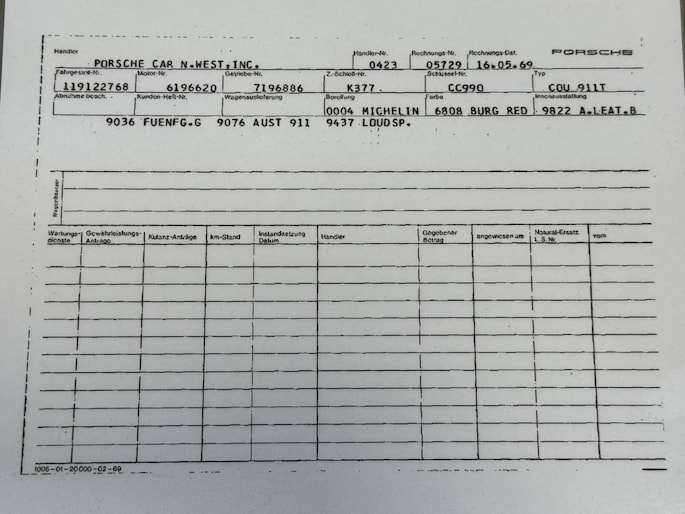 Händler Händler-Nr. Rechnungs-Nr. Rechnungs-Dat. PORSCHE
PORSCHE CAR N.WEST,INC. 0423 05729 16.05.69
Fahrgestell-Nr. Motor-Nr. Getriebe-Nr. Z.-Schloß-Nr. Schlüssel-Nr. Typ
119122768 6196620 7196886 K377 CC990 COU 911T
Abnahme besch. Kunden-Heft-Nr. Wagenauslieferung Bereifung Farbe Innenausstattung
0004 MICHELIN 6808 BURG RED 9822 A.LEAT.B
9036 FUENFG.G 9076 AUST 911 9437 LOUDSP.
Wartungs- Gewährleistungs- Kulanz-Anträge km-Stand Instandsetzung Händler Gegebener angewiesen am Natural-Ersatz vom
dienste Anträge Datum Betrag L.S. Nr.
1006-01-20000-02-69